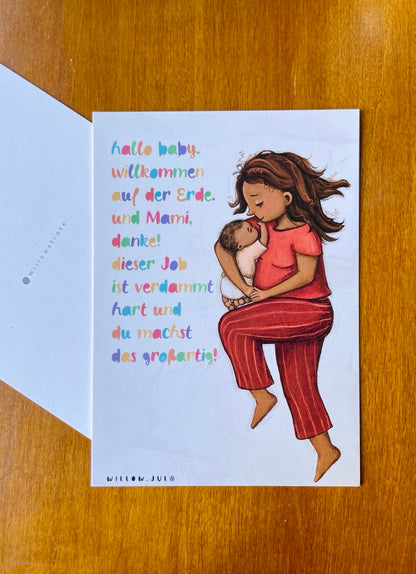 hallo baby.
willkommen
auf der Erde.
und Mami,
danke!
dieser Job
ist verdammt
hart und
du machst
das großartig!
WILLOW.JUL